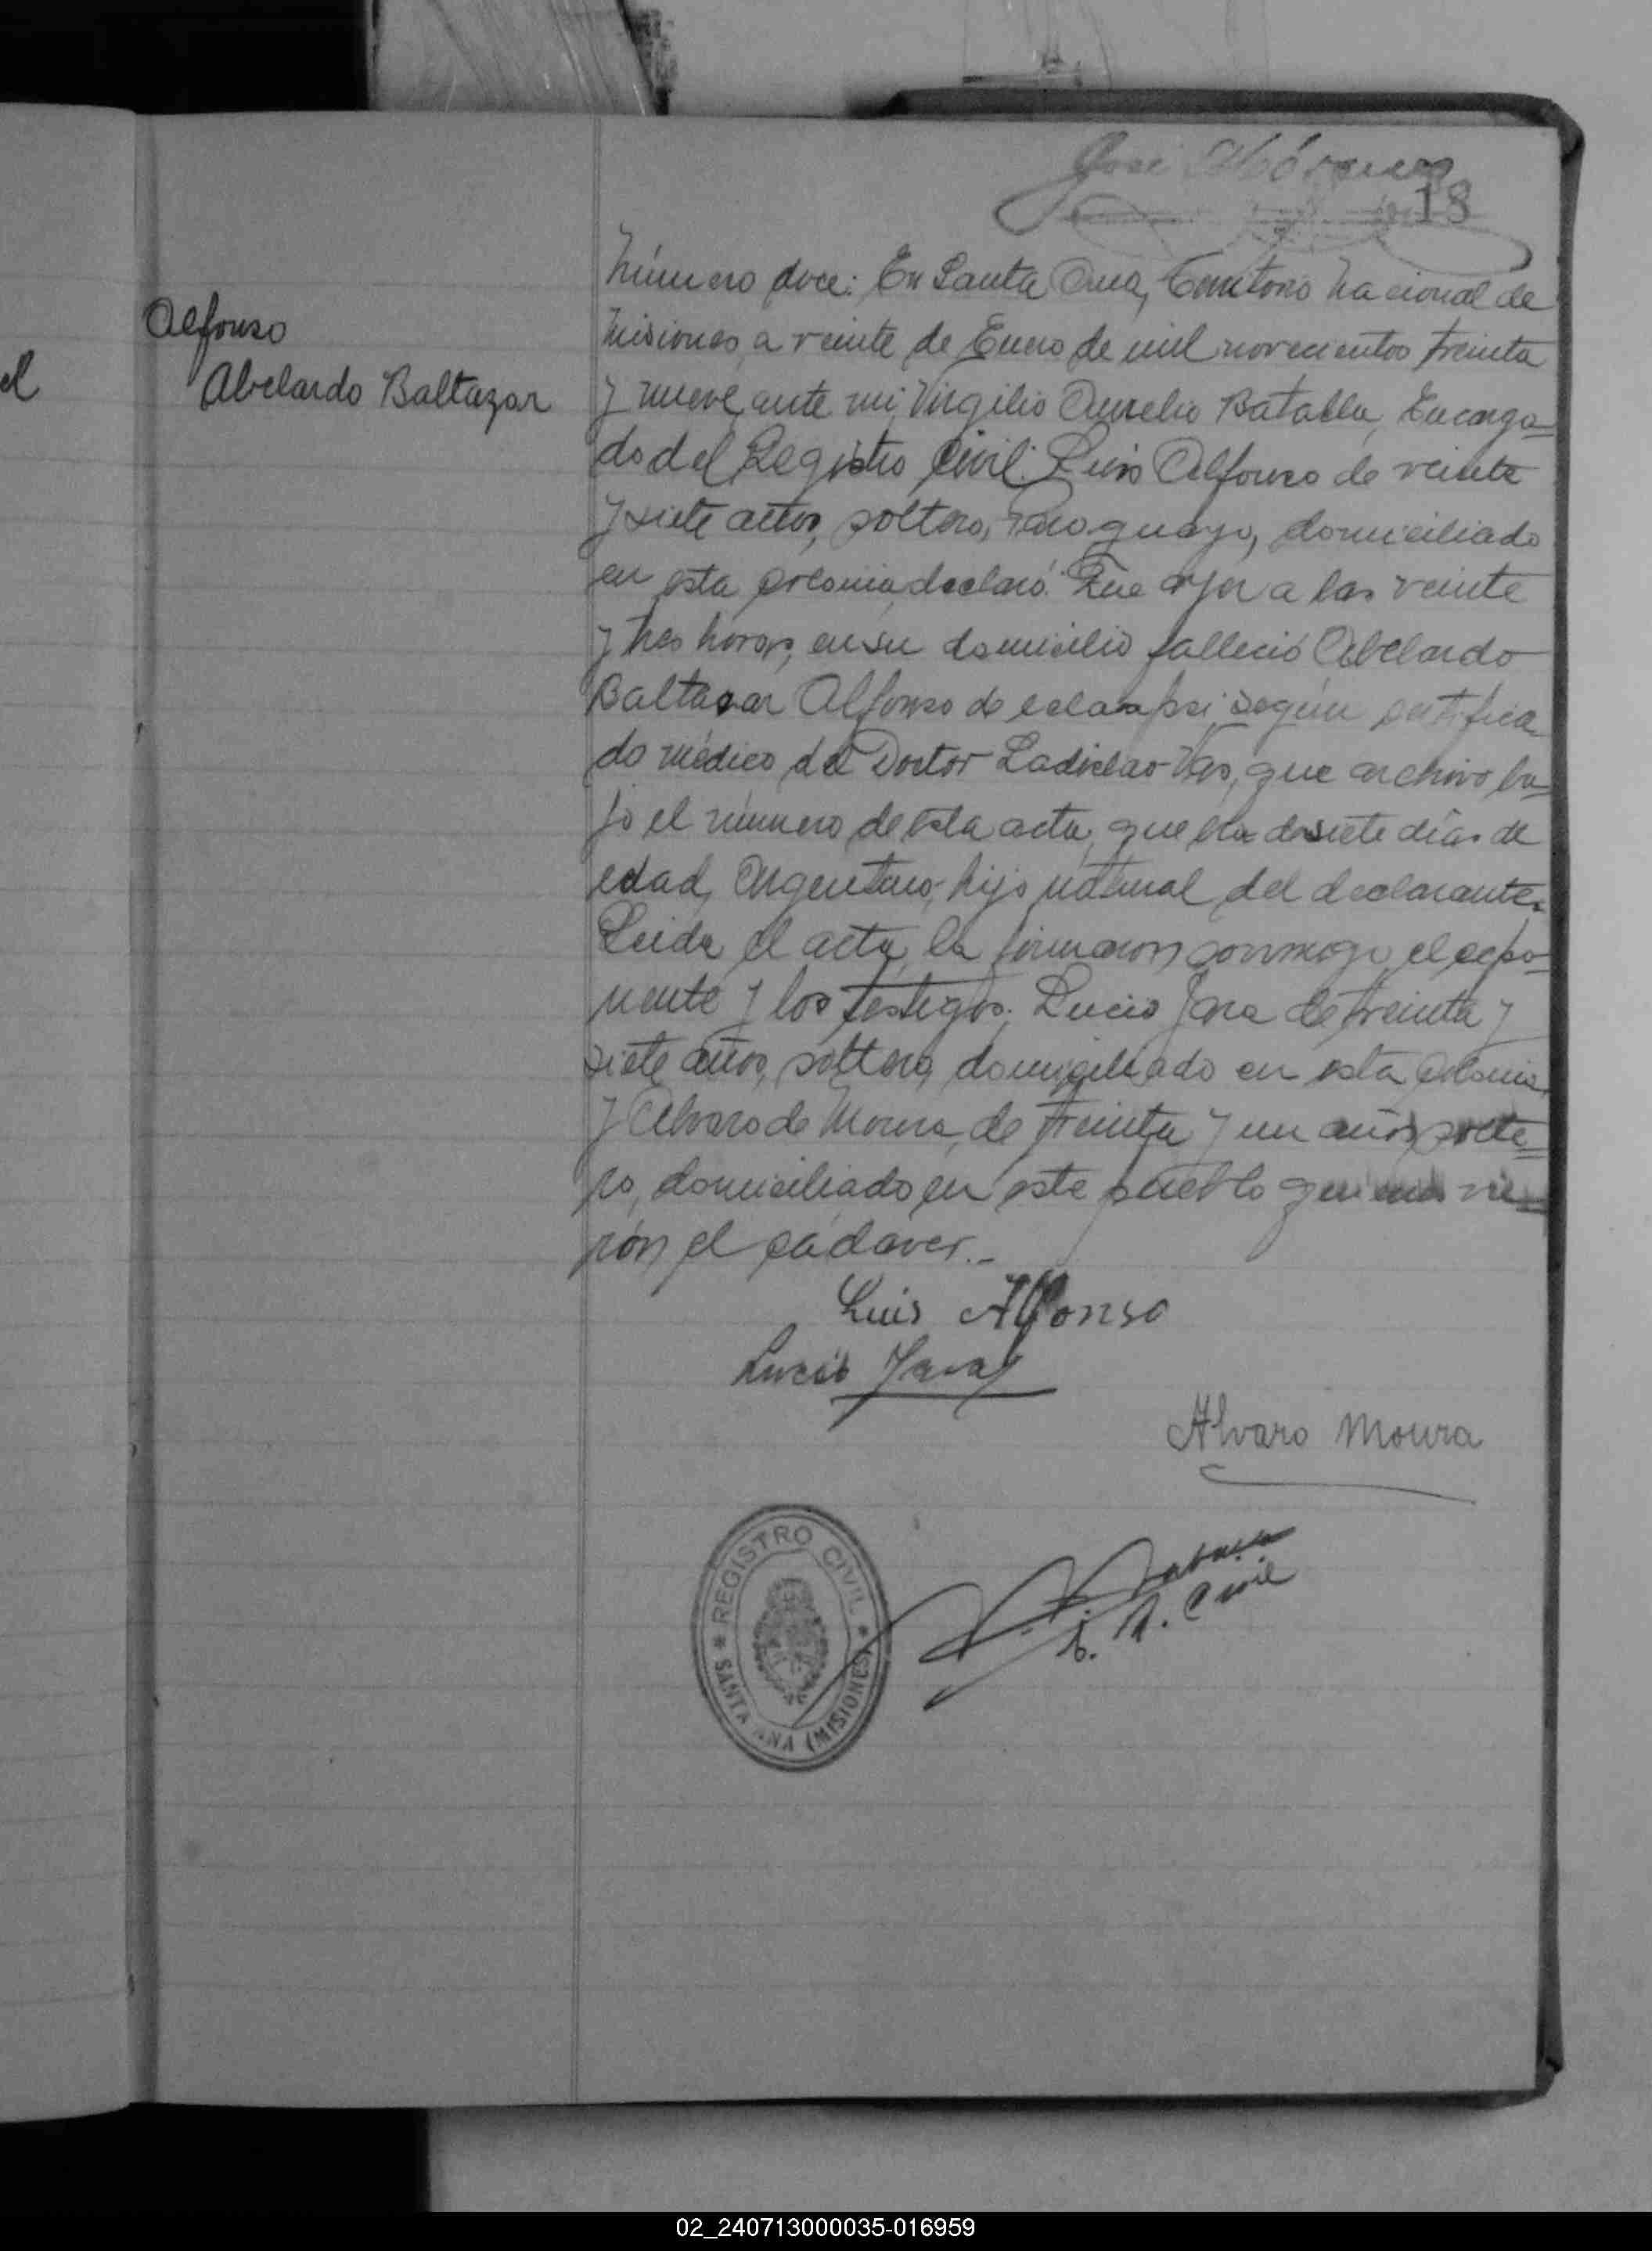 José
18
el
Alfonso
Abelardo Baltazar
Número doce: En Santa Ana, Territorio Nacional de
Misiones, a veinte de Enero de mil novecientos treinta
y nueve, ante mi, Virgilio Aurelio Batalla, Encarga=
do del Registro Civil: Luis Alfonso de veinte
y siete años, soltero, Paraguayo, domiciliado
en esta colonia, declaró: Que ayer a las veinte
y tres horas, en su domicilio falleció Abelardo
Baltazar Alfonso de eclampsi, según certifica
do médico del Doctor Ladislao, que archivo ba=
jo el número de esta acta, que era de siete días de
edad, Argentino, hijo natural del declarante.
Leida el acta, la firmaron conmigo, el expo=
nente y los testigos: Lucio Jara de treinta y
siete años, soltero, domiciliado en esta colonia,
y Alvaro de Moura, de treinta y un años, solte=
ro, domiciliado en este pueblo, quienes vie=
rón el cadáver.-
Luis Alfonso
Lucio Jara
Alvaro Moura
REGISTRO CIVIL
* SANTA ANA (MISIONES) *
R. Civil
02_240713000035-016959